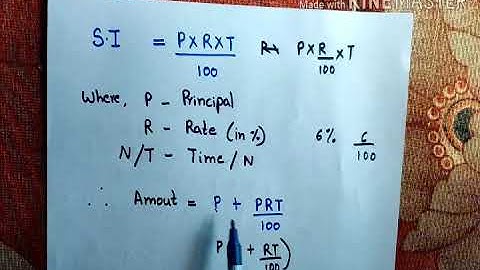 Made with KINEMASTER
S.I = P×R×T/100 P×R/100×T
Where, P – Principal
R – Rate (in %) 6% 6/100
N/T – Time / N
∴ Amout = P + PRT/100
P + RT/100)